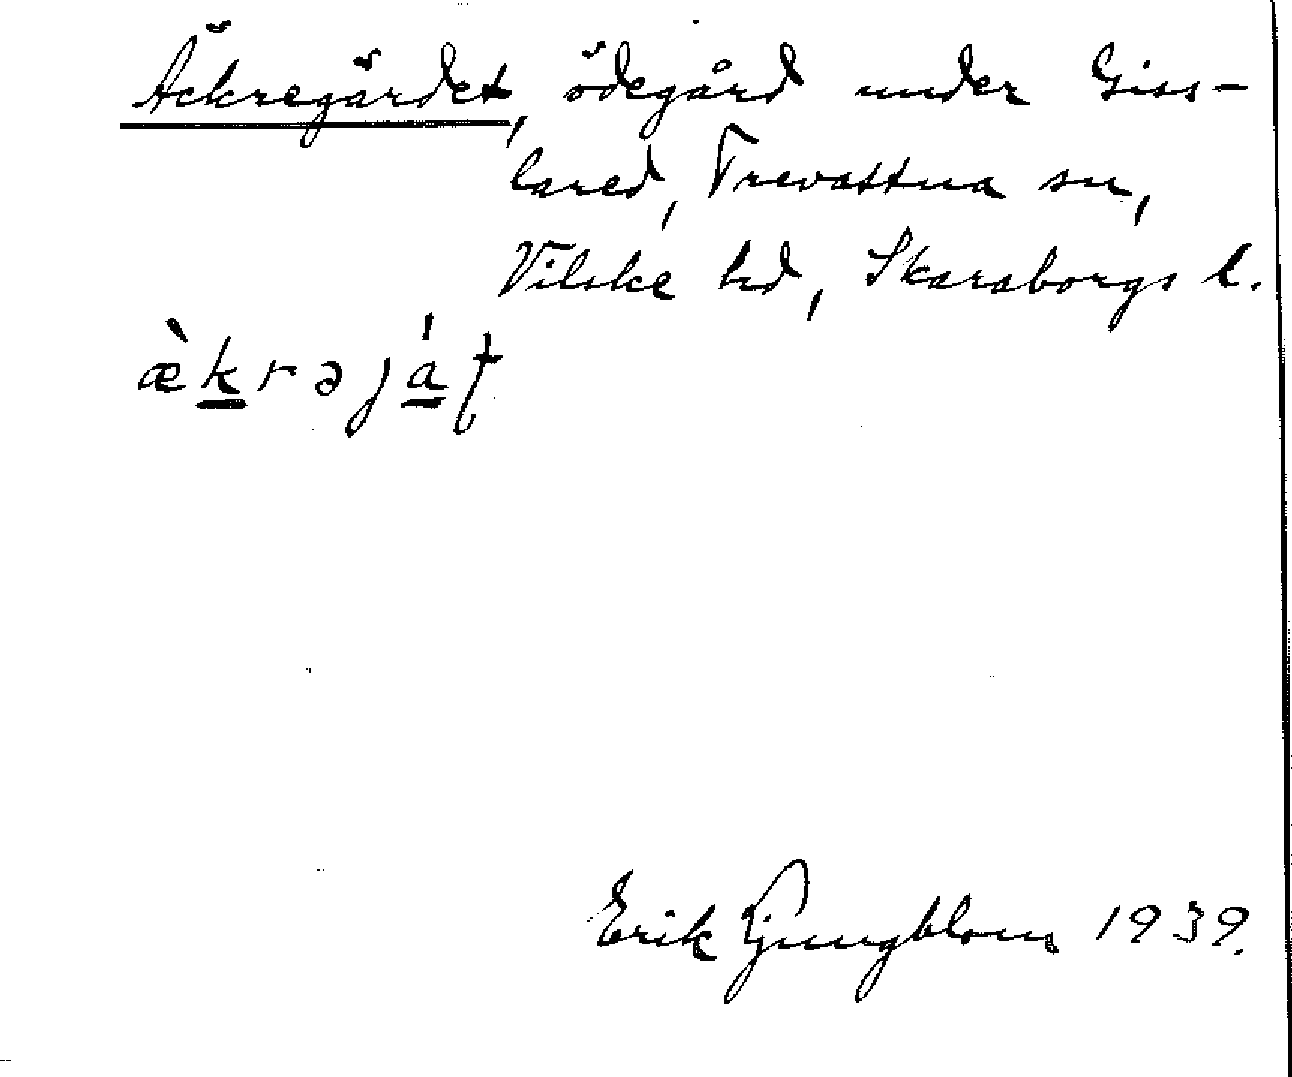 Äckregärdet, ödegård under Giss-
lared, Trevattna sn,
Vilske hd, Skaraborgs l.
æ̀k̲rəjá̲ʈ
Erik Ljungblom 1939.